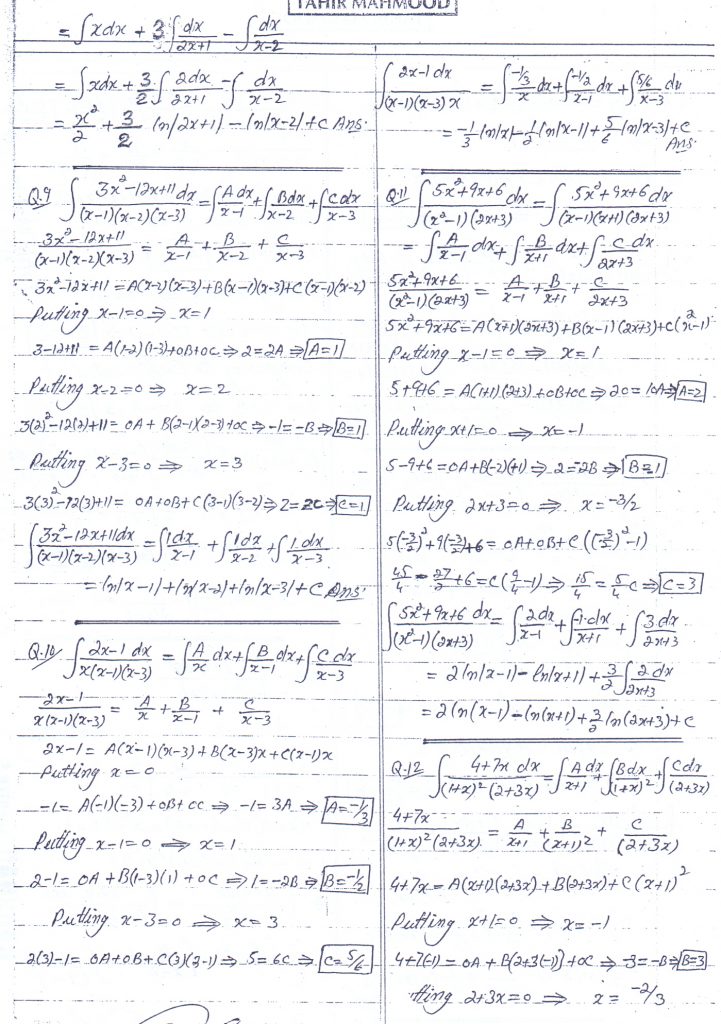 TAHIR MAHMOOD
= ∫xdx + 3∫dx/2x+1 − ∫dx/x-2
= ∫xdx + 3/2∫2dx/2x+1 − ∫dx/x-2
= x²/2 + 3/2 ln|2x+1| − ln|x-2| + C Ans.
Q.9 ∫3x²-12x+11 dx/(x-1)(x-2)(x-3) = ∫A dx/x-1 + ∫Bdx/x-2 + ∫C dx/x-3
3x²-12x+11/(x-1)(x-2)(x-3) = A/x-1 + B/x-2 + C/x-3
3x²-12x+11 = A(x-2)(x-3)+B(x-1)(x-3)+C(x-1)(x-2)
Putting x-1=0 ⇒ x=1
3-12+11 = A(1-2)(1-3)+0B+0C ⇒ 2=2A ⇒ A=1
Putting x-2=0 ⇒ x=2
3(2)²-12(2)+11 = 0A + B(2-1)(2-3)+0C ⇒ -1=-B ⇒ B=1
Putting x-3=0 ⇒ x=3
3(3)²-12(3)+11 = 0A+0B+C(3-1)(3-2) ⇒ 2=2C ⇒ C=1
∫3x²-12x+11dx/(x-1)(x-2)(x-3) = ∫1dx/x-1 + ∫1dx/x-2 + ∫1.dx/x-3
= ln|x-1|+ln|x-2|+ln|x-3|+C Ans.
Q.10 ∫2x-1 dx/x(x-1)(x-3) = ∫A/x dx+∫B/x-1 dx+∫C dx/x-3
2x-1/x(x-1)(x-3) = A/x + B/x-1 + C/x-3
2x-1 = A(x-1)(x-3)+B(x-3)x+C(x-1)x
Putting x=0
-1 = A(-1)(-3)+0B+0C ⇒ -1=3A ⇒ A=-1/3
Putting x-1=0 ⇒ x=1
2-1 = 0A+B(1-3)(1)+0C ⇒ 1=-2B ⇒ B=-1/2
Putting x-3=0 ⇒ x=3
2(3)-1 = 0A+0B+C(3)(3-1) ⇒ 5=6C ⇒ C=5/6
∫2x-1 dx/(x-1)(x-3)x = ∫-1/3/x dx+∫-1/2/x-1 dx+∫5/6/x-3 dx
= -1/3 ln|x|-1/2 ln|x-1|+5/6 ln|x-3|+C
Ans.
Q.11 ∫5x²+9x+6/(x²-1)(2x+3) dx = ∫5x²+9x+6 dx/(x-1)(x+1)(2x+3)
= ∫A/x-1 dx+∫B/x+1 dx+∫C dx/2x+3
5x²+9x+6/(x²-1)(2x+3) = A/x-1 + B/x+1 + C/2x+3
5x²+9x+6 = A(x+1)(2x+3)+B(x-1)(2x+3)+C(x²-1)
Putting x-1=0 ⇒ x=1
5+9+6 = A(1+1)(2+3)+0B+0C ⇒ 20=10A ⇒ A=2
Putting x+1=0 ⇒ x=-1
5-9+6 = 0A+B(-2)(+1) ⇒ 2=-2B ⇒ B=-1
Putting 2x+3=0 ⇒ x=-3/2
5(-3/2)²+9(-3/2)+6 = 0A+0B+C((-3/2)²-1)
45/4 - 27/2+6 = C(9/4-1) ⇒ 15/4 = 5/4 C ⇒ C=3
∫5x²+9x+6 dx/(x²-1)(2x+3) = ∫2dx/x-1 + ∫-1.dx/x+1 + ∫3.dx/2x+3
= 2ln|x-1|-ln|x+1|+3/2∫2dx/2x+3
= 2ln(x-1)-ln(x+1)+3/2 ln(2x+3)+C
Q.12 ∫4+7x dx/(1+x)²(2+3x) = ∫A dx/x+1 + ∫Bdx/(1+x)² + ∫Cdx/(2+3x)
4+7x/(1+x)²(2+3x) = A/x+1 + B/(x+1)² + C/(2+3x)
4+7x = A(x+1)(2+3x)+B(2+3x)+C(x+1)²
Putting x+1=0 ⇒ x=-1
4+7(-1) = 0A+B(2+3(-1))+0C ⇒ -3=-B ⇒ B=3
tting 2+3x=0 ⇒ x = -2/3